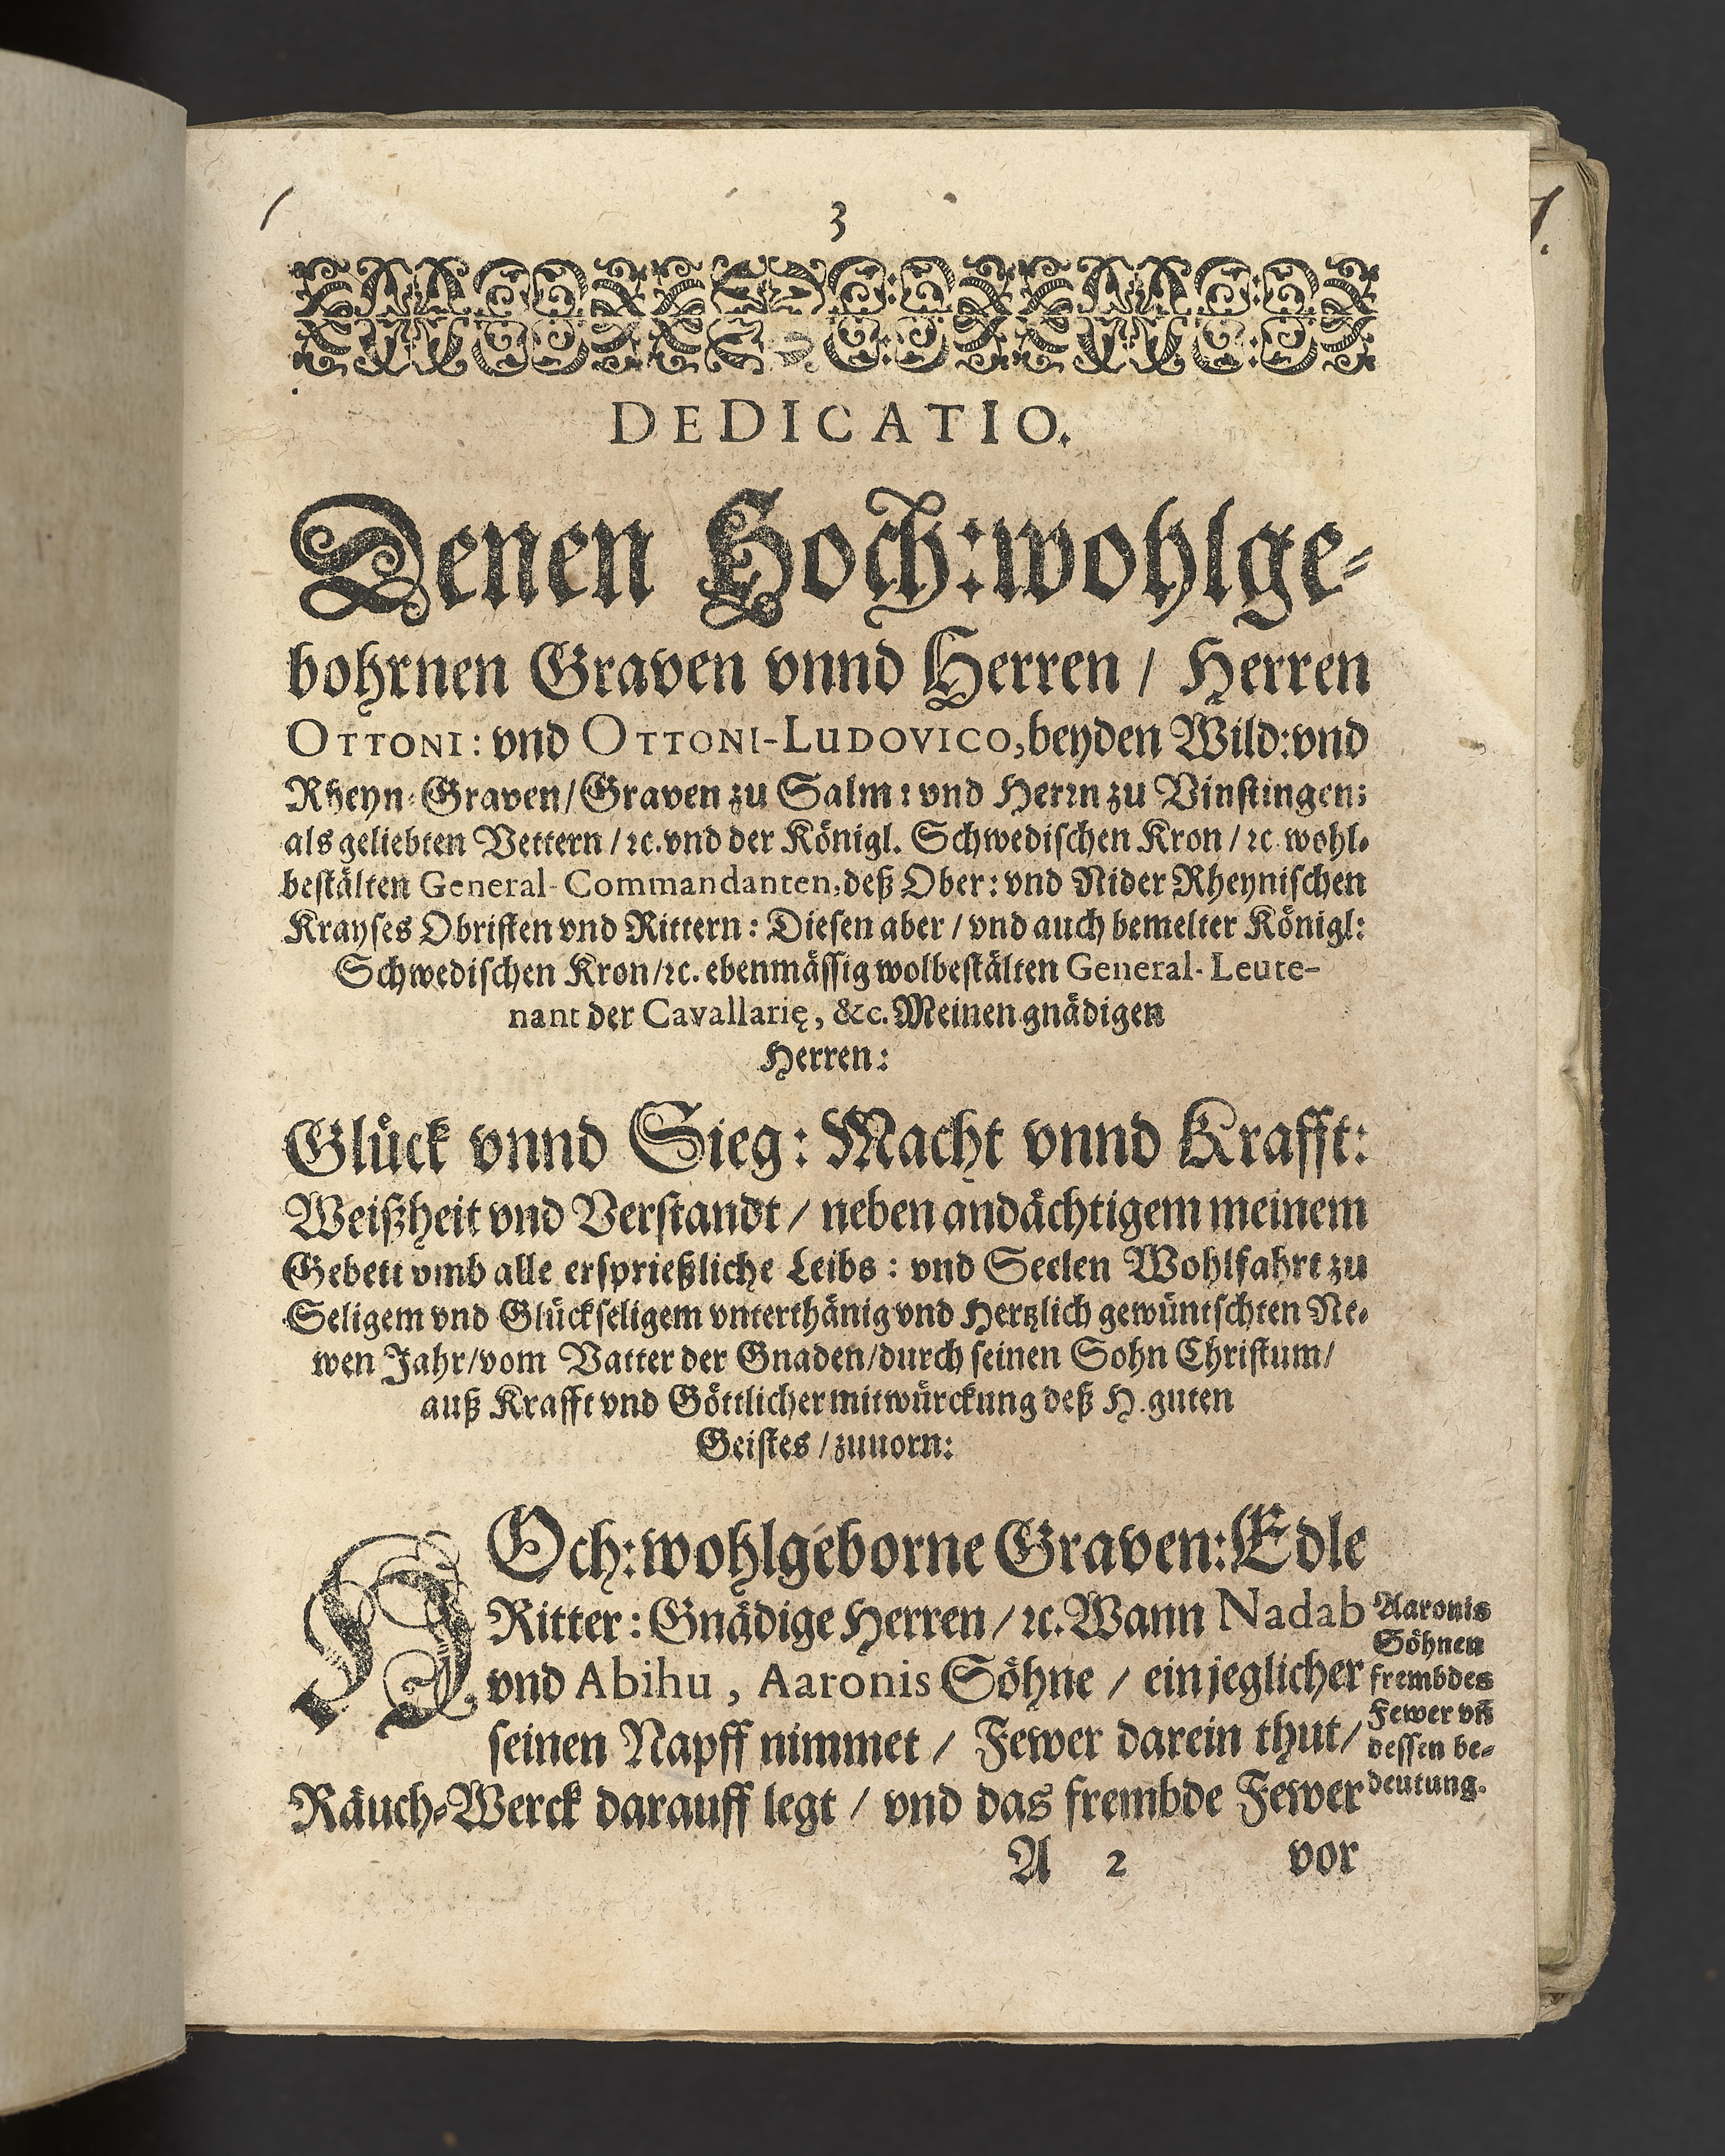 3
DEDICATIO.
Denen Hoch:wohlge-
bohrnen Graven vnnd Herren / Herren
OTTONI: vnd OTTONI-LUDOVICO, beyden Wild: vnd
Rheyn-Graven/Graven zu Salm: vnd Herrn zu Vinstingen;
als geliebten Vettern / ꝛc. vnd der Königl. Schwedischen Kron / ꝛc wohl-
bestälten General-Commandanten, deß Ober: vnd Nider Rheynischen
Krayses Obristen vnd Rittern: Diesen aber / vnd auch bemelter Königl:
Schwedischen Kron/ꝛc. ebenmässig wolbestälten General-Leute-
nant der Cavallarię, &c. Meinen gnädigen
Herren:
Glück vnnd Sieg: Macht vnnd Krafft:
Weißheit vnd Verstandt / neben andächtigem meinem
Gebett vmb alle ersprießliche Leibs: vnd Seelen Wohlfahrt zu
Seligem vnd Glückseligem vnterthänig vnd Hertzlich gewüntschten Ne-
wen Jahr/vom Vatter der Gnaden/durch seinen Sohn Christum/
auß Krafft vnd Göttlicher mitwürckung deß H. guten
Geistes / zuuorn:
HOch:wohlgeborne Graven: Edle
Ritter: Gnädige Herren / ꝛc. Wann Nadab
vnd Abihu, Aaronis Söhne / ein jeglicher
seinen Napff nimmet / Fewer darein thut/
Räuch-Werck darauff legt / vnd das frembde Fewer
Aaronis
Söhnen
frembdes
Fewer vñ
dessen be-
deutung.
A 2 vor